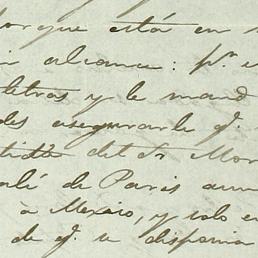 porque está en
alcance: pr
letras y le mand
asegurarle q.
del Sr Mor
de Paris aun
á Mexico, y solo en
de q. se disponia